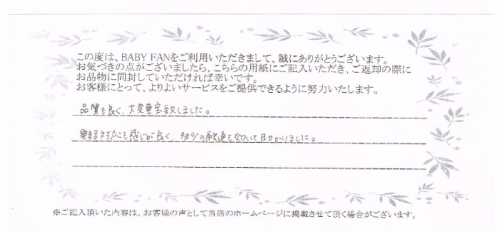 この度は、BABY FANをご利用いただきまして、誠にありがとうございます。
お気づきの点がございましたら、こちらの用紙にご記入いただき、ご返却の際に
お品物に同封していただければ幸いです。
お客様にとって、よりよいサービスをご提供できるように努力いたします。
品質も良く、大変重宝致しました。
も感じが良く、
※ご記入頂いた内容は、お客様の声として当店のホームページに掲載させて頂く場合がございます。